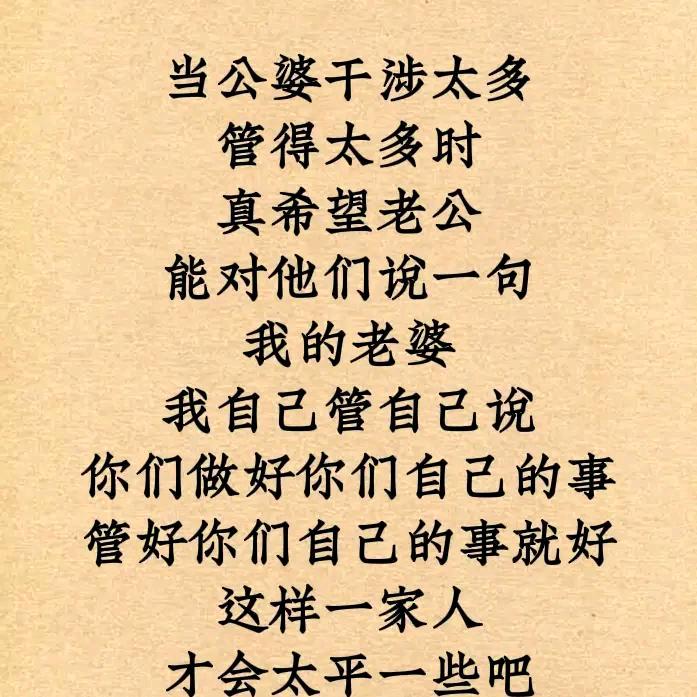 当公婆干涉太多
管得太多时
真希望老公
能对他们说一句
我的老婆
我自己管自己说
你们做好你们自己的事
管好你们自己的事就好
这样一家人
才会太平一些吧